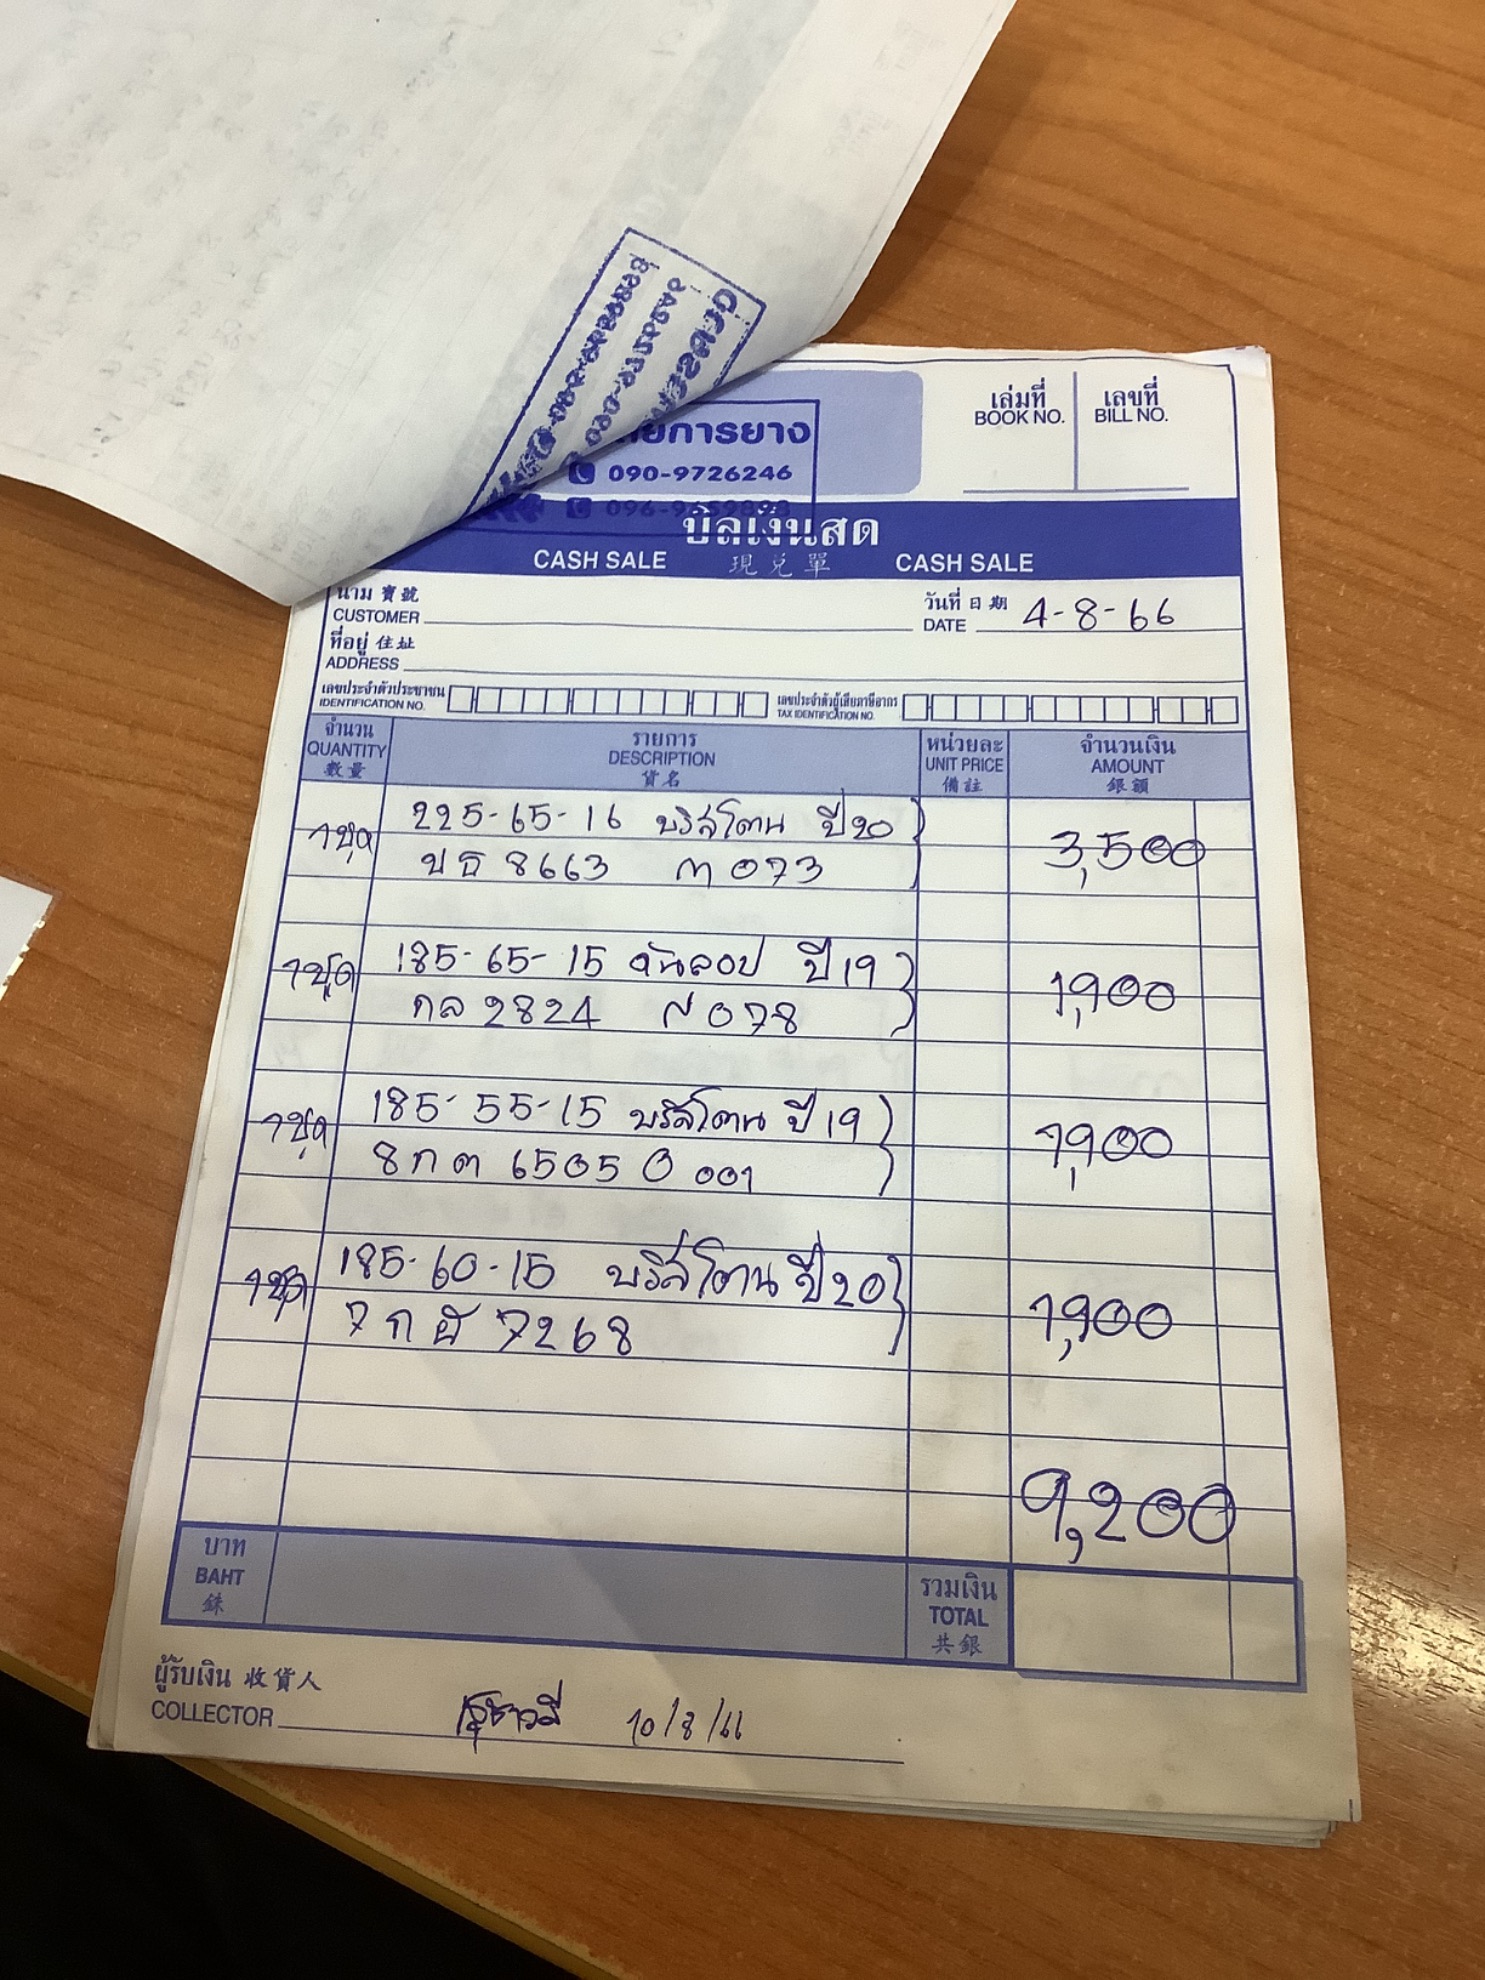 ยการยาง
090-9726246
เล่มที่ เลขที่
BOOK NO. BILL NO.
บิลเงินสด
CASH SALE 現兌單 CASH SALE
นาม 寶號
CUSTOMER
วันที่ 日期
DATE 4-8-66
ที่อยู่ 住址
ADDRESS
เลขประจำตัวประชาชน เลขประจำตัวผู้เสียภาษีอากร
IDENTIFICATION NO. TAX IDENTIFICATION NO.
จำนวน รายการ หน่วยละ จำนวนเงิน
QUANTITY DESCRIPTION UNIT PRICE AMOUNT
數量 貨名 備註 銀額
1ชุด 225-65-16 บริสโตน ปี20 3,500
ปธ 8663 ท073
1ชุด 185-65-15 ดันลอป ปี19 1,900
กล 2824 ส078
1ชุด 185-55-15 บริสโตน ปี19 1,900
8กต 6505 0 001
1ชุด 185-60-15 บริสโตน ปี20 1,900
7กฮ 7268
9,200
บาท รวมเงิน
BAHT TOTAL
銖 共銀
ผู้รับเงิน 收貨人
COLLECTOR 10/8/66